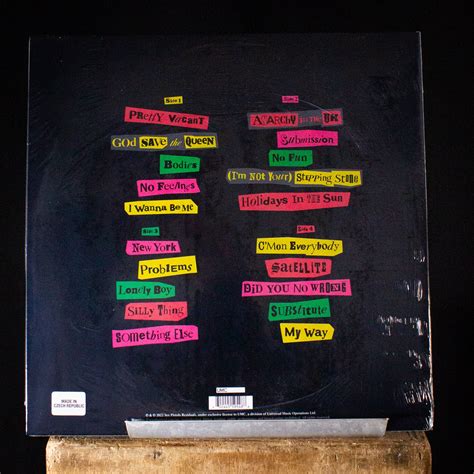 Side 1
Pretty Vacant
God Save the Queen
Bodies
No Feelings
I Wanna Be Me
Side 2
Anarchy in the UK
Submission
No Fun
(I'm Not Your) Stepping Stone
Holidays In The Sun
Side 3
New York
Problems
Lonely Boy
Silly Thing
Something Else
Side 4
C'mon Everybody
Satellite
Did You No Wrong
Substitute
My Way
UMC
MADE IN
CZECH REPUBLIC
℗ & © 2022 Sex Pistols Residuals, under exclusive license to UMC, a division of Universal Music Operations Ltd.